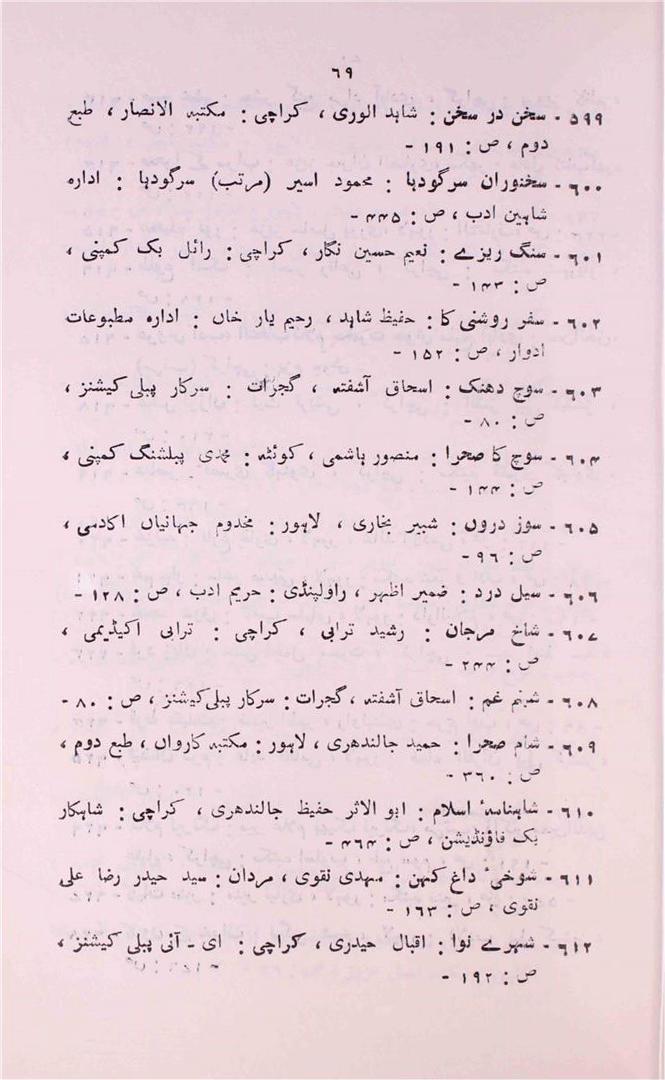 ٦٩
٥٩٩ - سخن در سخن : شاہد الوری ، کراچی : مکتبہ الانصار ، طبع
دوم ، ص : ١٩١ -
٦٠٠ - سخنوران سرگودہا : محمود اسیر (مرتب) سرگودہا : ادارہ
شاہین ادب ، ص : ٤٤٥ -
٦٠١ - سنگ ریزے : نعیم حسین نگار ، کراچی : رائل بک کمپنی ،
ص : ١٤٣ -
٦٠٢ - سفر روشنی کا : حفیظ شاہد ، رحیم یار خاں : ادارہ مطبوعات
ادوار ، ص : ١٥٢ -
٦٠٣ - سوچ دھنک : اسحاق آشفتہ ، گجرات : سرکار پبلی کیشنز ،
ص : ٨٠ -
٦٠٤ - سوچ کا صحرا : منصور ہاشمی ، کوئٹہ : مجدی پبلشنگ کمپنی ،
ص : ١٤٤ -
٦٠٥ - سوز دروں : شبیر بخاری ، لاہور : مخدوم جہانیاں اکادمی ،
ص : ٩٦ -
٦٠٦ - سیل درد : ضمیر اظہر ، راولپنڈی : حریم ادب ، ص : ١٢٨ -
٦٠٧ - شاخ مرجان : رشید ترابی ، کراچی : ترابی اکیڈیمی ،
ص : ٢٤٤ -
٦٠٨ - شبنم غم : اسحاق آشفتہ ، گجرات : سرکار پبلی کیشنز ، ص : ٨٠ -
٦٠٩ - شام صحرا : حمید جالندھری ، لاہور : مکتبہ کارواں ، طبع دوم ،
ص : ٣٦٠ -
٦١٠ - شاہنامۂ اسلام : ابو الاثر حفیظ جالندھری ، کراچی : شاہکار
بک فاؤنڈیشن ، ص : ٤٦٤ -
٦١١ - شوخیٔ داغ کہن : مہدی نقوی ، مردان : سید حیدر رضا علی
نقوی ، ص : ١٦٣ -
٦١٢ - شہرے نوا : اقبال حیدری ، کراچی : ای - آئی پبلی کیشنز ،
ص : ١٩٢ -